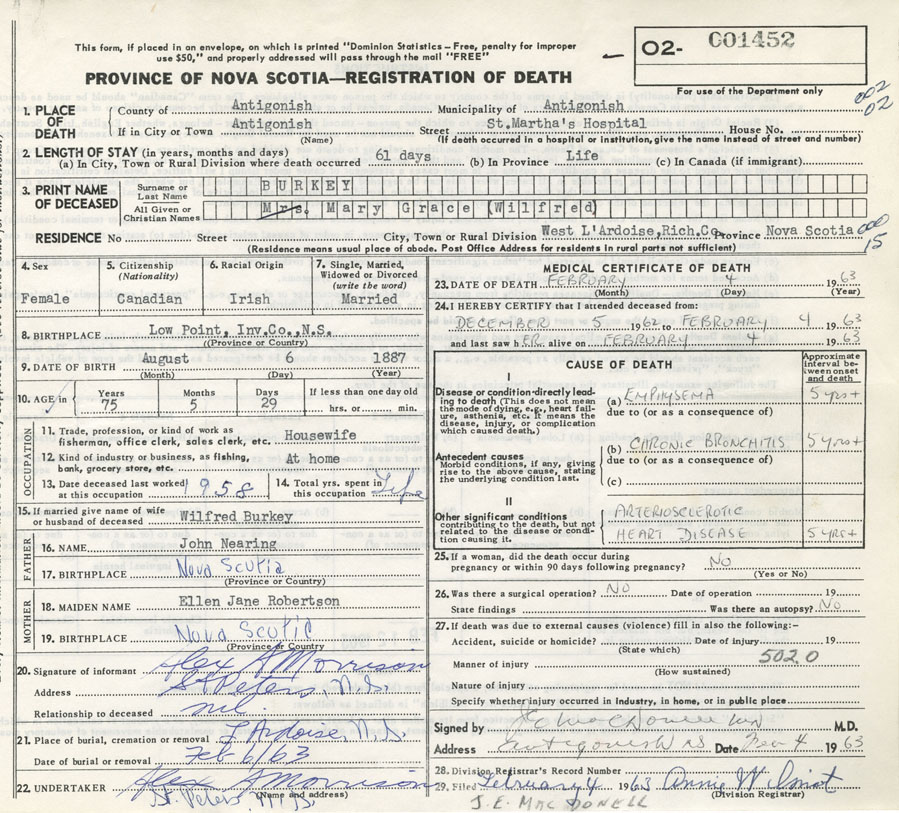 This form, if placed in an envelope, on which is printed "Dominion Statistics – Free, penalty for improper
use $50," and properly addressed will pass through the mail "FREE"
O2- C01452
PROVINCE OF NOVA SCOTIA—REGISTRATION OF DEATH
For use of the Department only
002
02
1. PLACE OF DEATH
County of Antigonish Municipality of Antigonish
If in City or Town Antigonish Street St.Martha's Hospital House No.
(Name) (If death occurred in a hospital or institution, give the name instead of street and number)
2. LENGTH OF STAY (in years, months and days)
(a) In City, Town or Rural Division where death occurred 61 days (b) In Province Life (c) In Canada (if immigrant)
3. PRINT NAME OF DECEASED
Surname or Last Name BURKEY
All Given or Christian Names Mrs. Mary Grace (Wilfred)
RESIDENCE No Street City, Town or Rural Division West L'Ardoise,Rich.Co Province Nova Scotia
15
(Residence means usual place of abode. Post Office Address for residents in rural parts not sufficient)
4. Sex
Female
5. Citizenship
(Nationality)
Canadian
6. Racial Origin
Irish
7. Single, Married,
Widowed or Divorced
(write the word)
Married
8. BIRTHPLACE Low Point, Inv.Co.,N.S.
(Province or Country)
9. DATE OF BIRTH August 6 1887
(Month) (Day) (Year)
10. AGE in Years 75 Months 5 Days 29 If less than one day old
hrs. or min.
OCCUPATION
11. Trade, profession, or kind of work as
fisherman, office clerk, sales clerk, etc. Housewife
12. Kind of industry or business, as fishing,
bank, grocery store, etc. At home
13. Date deceased last worked
at this occupation 1958
14. Total yrs. spent in
this occupation Life
15. If married give name of wife
or husband of deceased Wilfred Burkey
FATHER
16. NAME John Nearing
17. BIRTHPLACE Nova Scotia
(Province or Country)
MOTHER
18. MAIDEN NAME Ellen Jane Robertson
19. BIRTHPLACE Nova Scotia
(Province or Country)
20. Signature of informant Alex A Morrison
Address St Peters, N.S.
Relationship to deceased nil.
21. Place of burial, cremation or removal L'Ardoise, N.S.
Date of burial or removal Feb 6/63
22. UNDERTAKER Alex A Morrison
(Name and address)
St. Peters
MEDICAL CERTIFICATE OF DEATH
23. DATE OF DEATH FEBRUARY 4 1963
(Month) (Day) (Year)
24. I HEREBY CERTIFY that I attended deceased from:
DECEMBER 5 1962 to FEBRUARY 4 1963
and last saw hER alive on FEBRUARY 4 1963
CAUSE OF DEATH
Approximate
interval be-
tween onset
and death
I
Disease or condition directly lead-
ing to death (This does not mean
the mode of dying, e.g., heart fail-
ure, asthenia, etc. It means the
disease, injury, or complication
which caused death.)
(a) EMPHYSEMA 5 yrs+
due to (or as a consequence of)
(b) CHRONIC BRONCHITIS 5 yrs+
due to (or as a consequence of)
Antecedent causes
Morbid conditions, if any, giving
rise to the above cause, stating
the underlying condition last.
(c)
II
Other significant conditions
contributing to the death, but not
related to the disease or condi-
tion causing it.
ARTERIOSCLEROTIC
HEART DISEASE 5 yrs+
25. If a woman, did the death occur during
pregnancy or within 90 days following pregnancy? No
(Yes or No)
26. Was there a surgical operation? NO Date of operation 19
State findings Was there an autopsy? No
27. If death was due to external causes (violence) fill in also the following:–
Accident, suicide or homicide? Date of injury 19
(State which)
502.0
Manner of injury
(How sustained)
Nature of injury
Specify whether injury occurred in industry, in home, or in public place
Signed by M.D.
Address Antigonish NS Date Feb 4 1963
28. Division Registrar's Record Number
29. Filed February 4 1963 Annie
(Division Registrar)
J.E. MACDONELL